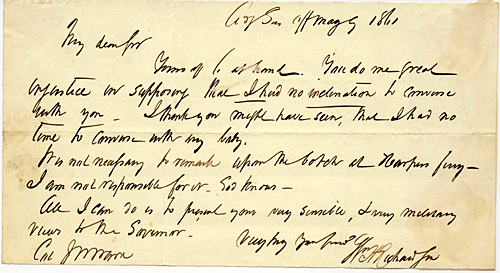 May 1861
My dear Sir
Yours of 6 at hand. You do me great
injustice in supposing that I had no inclination to converse
with you - I think you might have seen, that I had no
time to converse with any body.
It is not necessary to remark upon the botch at Harpers ferry -
I am not responsible for it. God knows -
All I can do is to present your very sensible, & very military
views to the Governor.
Very truly Your friend
Wm H Richardson
Col